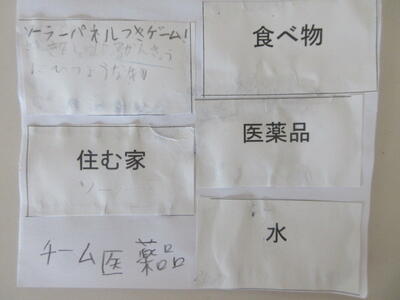 ソーラーパネルつきゲーム!
ひつような物
食べ物
住む家
医薬品
水
チーム医薬品